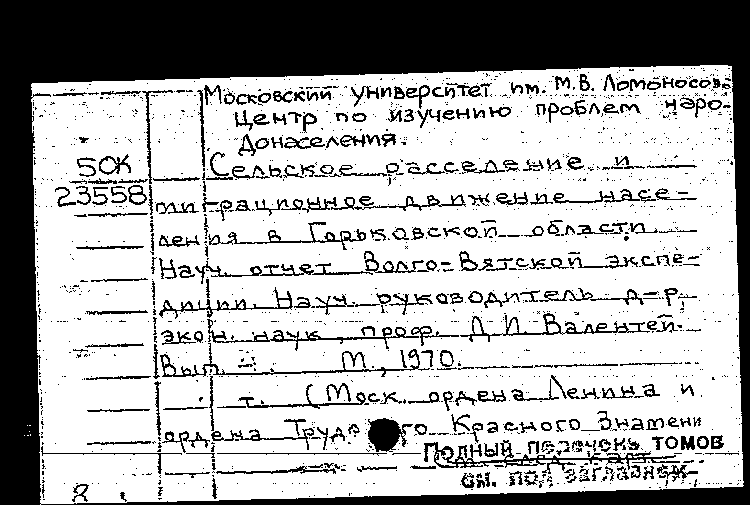 Московский университет им. М.В. Ломоносов.
Центр по изучению проблем наро-
донаселения.
50К
23558
Сельское расселение и
миграционное движение насе-
ления в Горьковской области.
Науч. отчет Волго-Вятской экспе-
диции. Науч. руководитель д-р
экон. наук, проф. Д.И. Валентей.
Вып. М., 1970.
т. (Моск. ордена Ленина и
ордена Трудо го Красного Знамени
Полный перечень томов
см. след. карт.
см. под заглавием
8